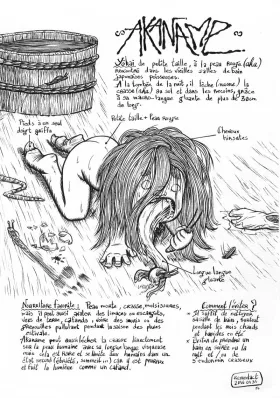 AKANAME
Yōkai de petite taille, à la peau rougie (aka)
rencontré dans les vieilles salles de bain
japonaises poisseuses.
À la tombée de la nuit, il lèche (name) la
crasse (aka) au sol et dans les recoins, grâce
à sa longue gluante de plus de 30cm
de long.
Petite taille + Peau rougie
Pieds à un seul
doigt griffu
Cheveux
hirsutes
Longue langue
gluante
Nourriture favorite : Peau morte, crasse, moisissures,
mais il peut aussi avaler des limaces ou escargots,
vers de terre, cafards, voire des souris ou des
grenouilles pendant la saison des pluies
estivale.
Akaname peut aussi lécher la crasse directement
sur la peau humaine avec sa longue langue visqueuse
mais cela est rare et se limite aux humains dans un
état second (ébriété, sommeil...) car il est peureux
et fuit la lumière comme un cafard.
Comment l'éviter ?
Il suffit de nettoyer
sa salle de bain, surtout
pendant les mois chauds
et humides en été
Éviter de prendre un
bain en soirée ou la
nuit et / ou de
s'endormir crasseux